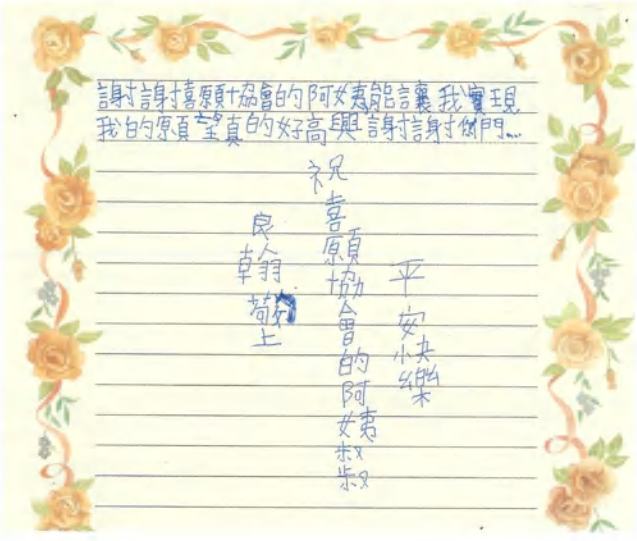 謝謝喜願協會的阿姨能讓我實現
我的願望真的好高興謝謝你們...
祝
喜願協會的阿姨叔叔
平安快樂
良翰敬上